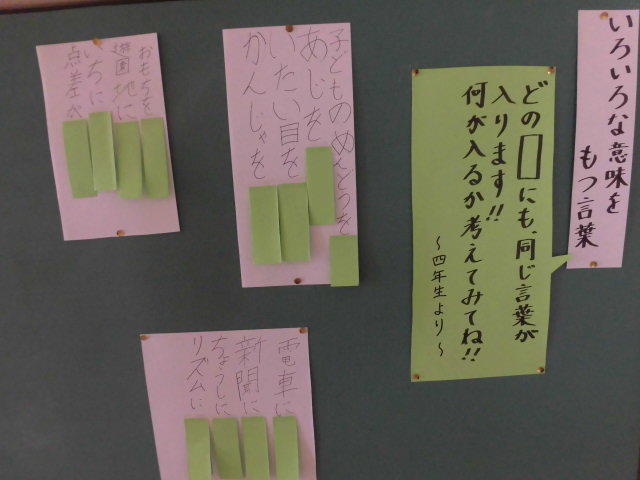 いろいろな意味を
もつ言葉
どの□にも、同じ言葉が
入ります!!
何が入るか考えてみてね!!
〜四年生より〜
子どものめんどうを
あじを
いたい目を
かんじゃを
おもちゃを
遊園地に
いちに
点差が
電車に
新聞に
ちょうしに
リズムに